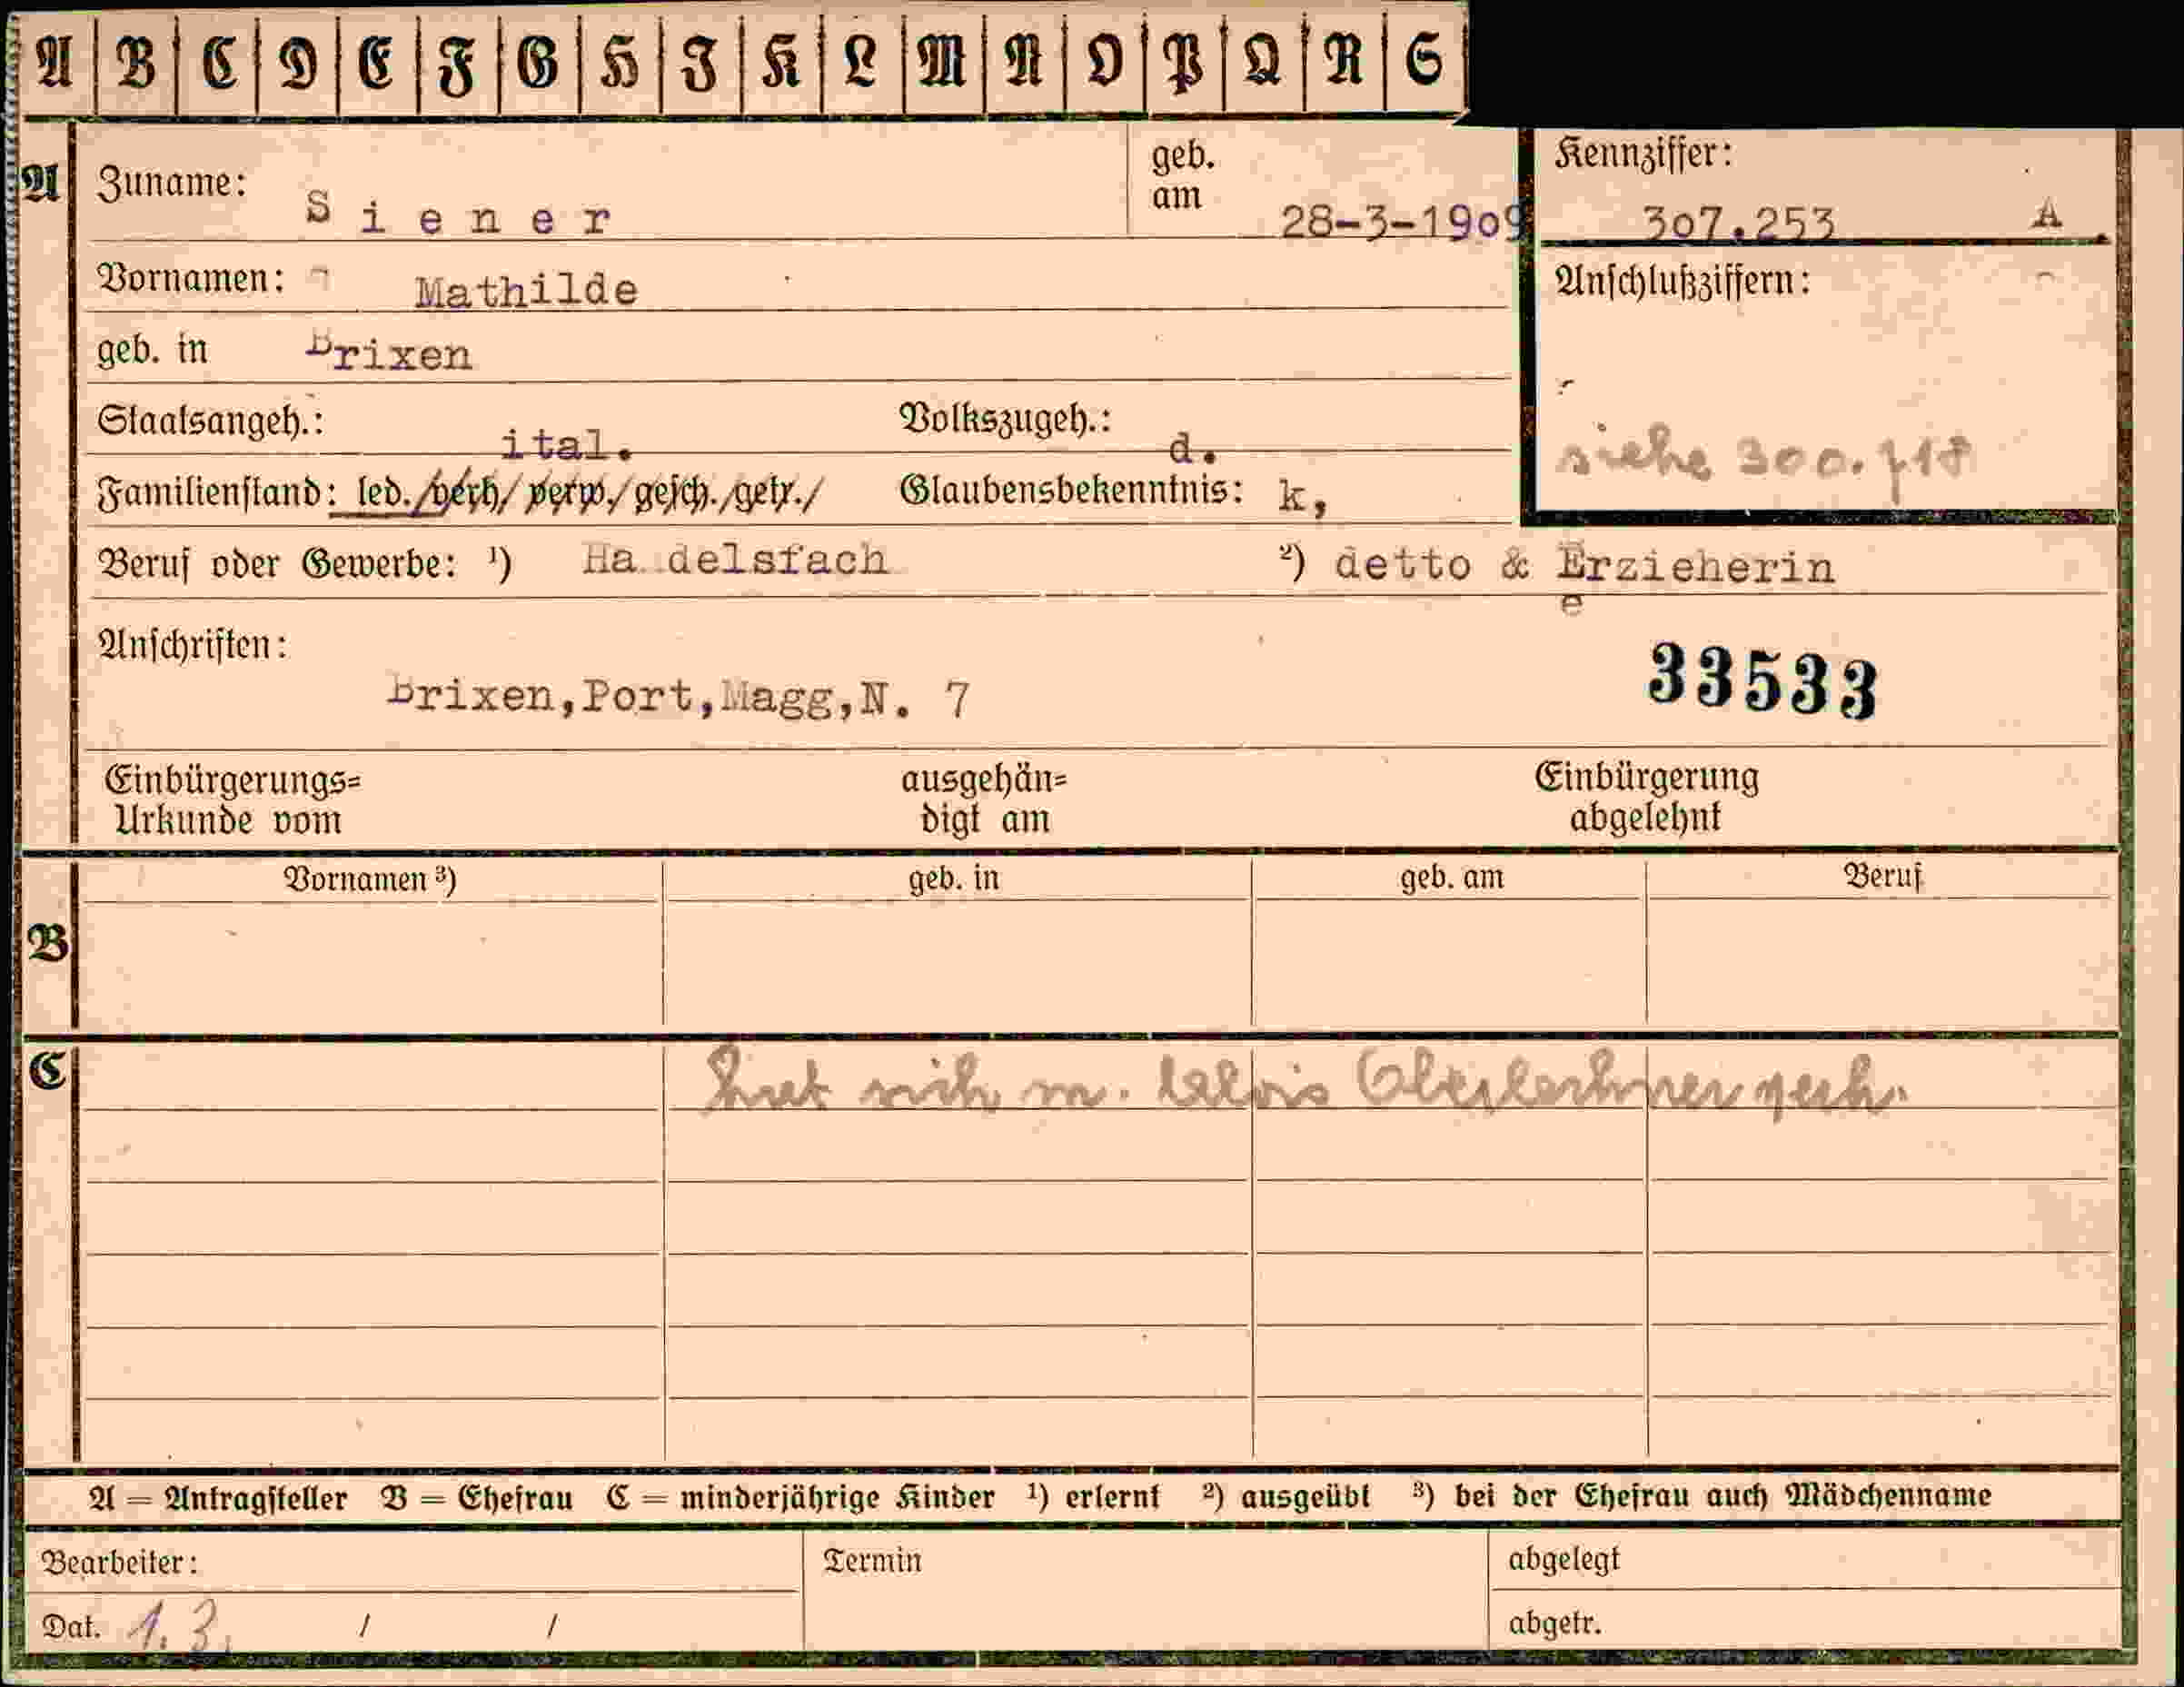 A B C D E F G H I K L M N O P Q R S
A
Zuname: Siener
geb. am 28-3-1909
Kennziffer: 307.253 A
Vornamen: Mathilde
Anschlußziffern:
geb. in Brixen
Staatsangeh.: ital. Volkszugeh.: d.
siehe 300.718
Familienstand: led./verh/verw./gesch./getr./ Glaubensbekenntnis: k,
Beruf oder Gewerbe: ¹) Ha delsfach ²) detto & Erzieherin
e
Anschriften:
Brixen,Port,Magg,N. 7
33533
Einbürgerungs= ausgehän= Einbürgerung
Urkunde vom digt am abgelehnt
B
Vornamen ³) geb. in geb. am Beruf
C
hat sich m. Alois Oberlechner
A = Antragsteller B = Ehefrau C = minderjährige Kinder ¹) erlernt ²) ausgeübt ³) bei der Ehefrau auch Mädchenname
Bearbeiter: Termin abgelegt
Dat. 1.3. / / abgetr.